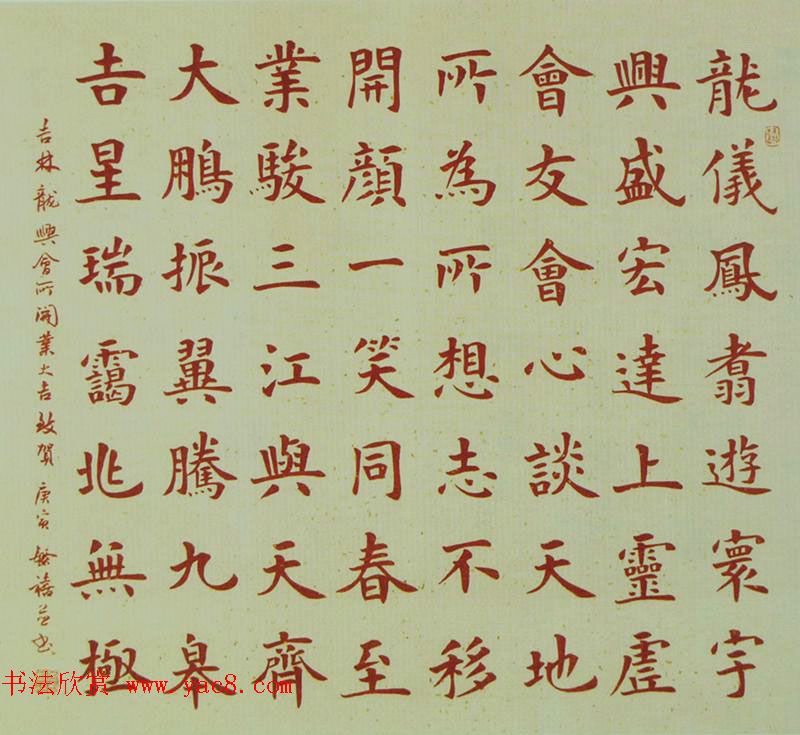 龍儀鳳翥遊寰宇
興盛宏達上靈虛
會友會心談天地
所為所想志不移
開顏一笑同春至
業駿三江與天齊
大鵬振翼騰九皋
吉星瑞靄兆無極
吉林龍興會所開業大吉致賀 庚寅
书法欣赏 www.yac8.com